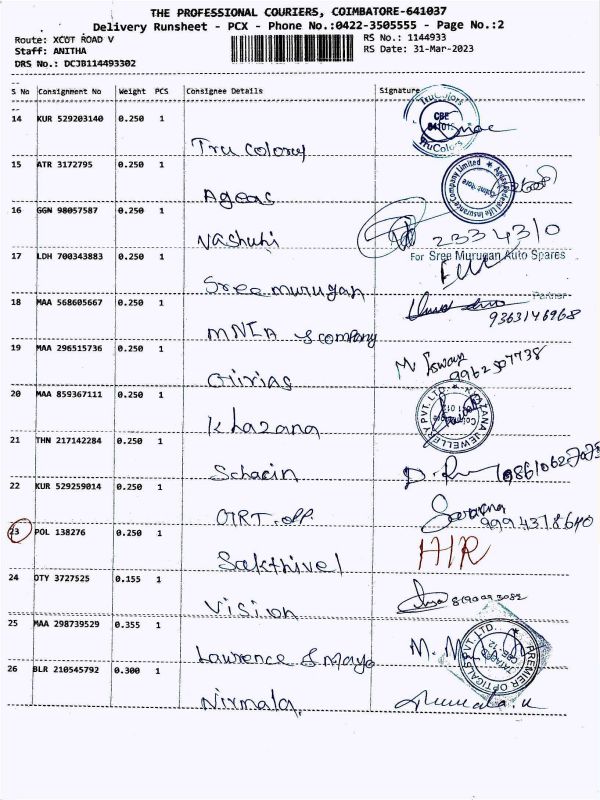 THE PROFESSIONAL COURIERS, COIMBATORE-641037
Delivery Runsheet - PCX - Phone No.:0422-3505555 - Page No.:2
Route: XCUT ROAD V
RS No.: 1144933
Staff: ANITHA
RS Date: 31-Mar-2023
DRS No.: DCJB114493302
S No Consignment No Weight PCS Consignee Details Signature
14 KUR 529203140 0.250 1
Tru Colony
TruColors
CBE
TruColors
15 ATR 3172795 0.250 1
Ageas
Ageas Federal Life Insurance Company Limited
16 GGN 98057587 0.250 1
Vashuhi
2334310
17 LDH 700343883 0.250 1
Sree murugan
For Sree Murugan Auto Spares
Partner
18 MAA 568605667 0.250 1
MNIA & company
9363146968
19 MAA 296515736 0.250 1
Girias
9962507738
20 MAA 859367111 0.250 1
Khazana
KHAZANA JEWELLERY PVT. LTD.
21 THN 217142284 0.250 1
Schacin
22 KUR 529259014 0.250 1
GRT. opp.
Saravana
9994378640
23 POL 138276 0.250 1
Sakthivel
H/R
24 OTY 3727525 0.155 1
Vision
8190093082
25 MAA 298739529 0.355 1
Lawrence & Mayo
M. M
PREMIER OPTICALS PVT. LTD.
26 BLR 210545792 0.300 1
Nirmala